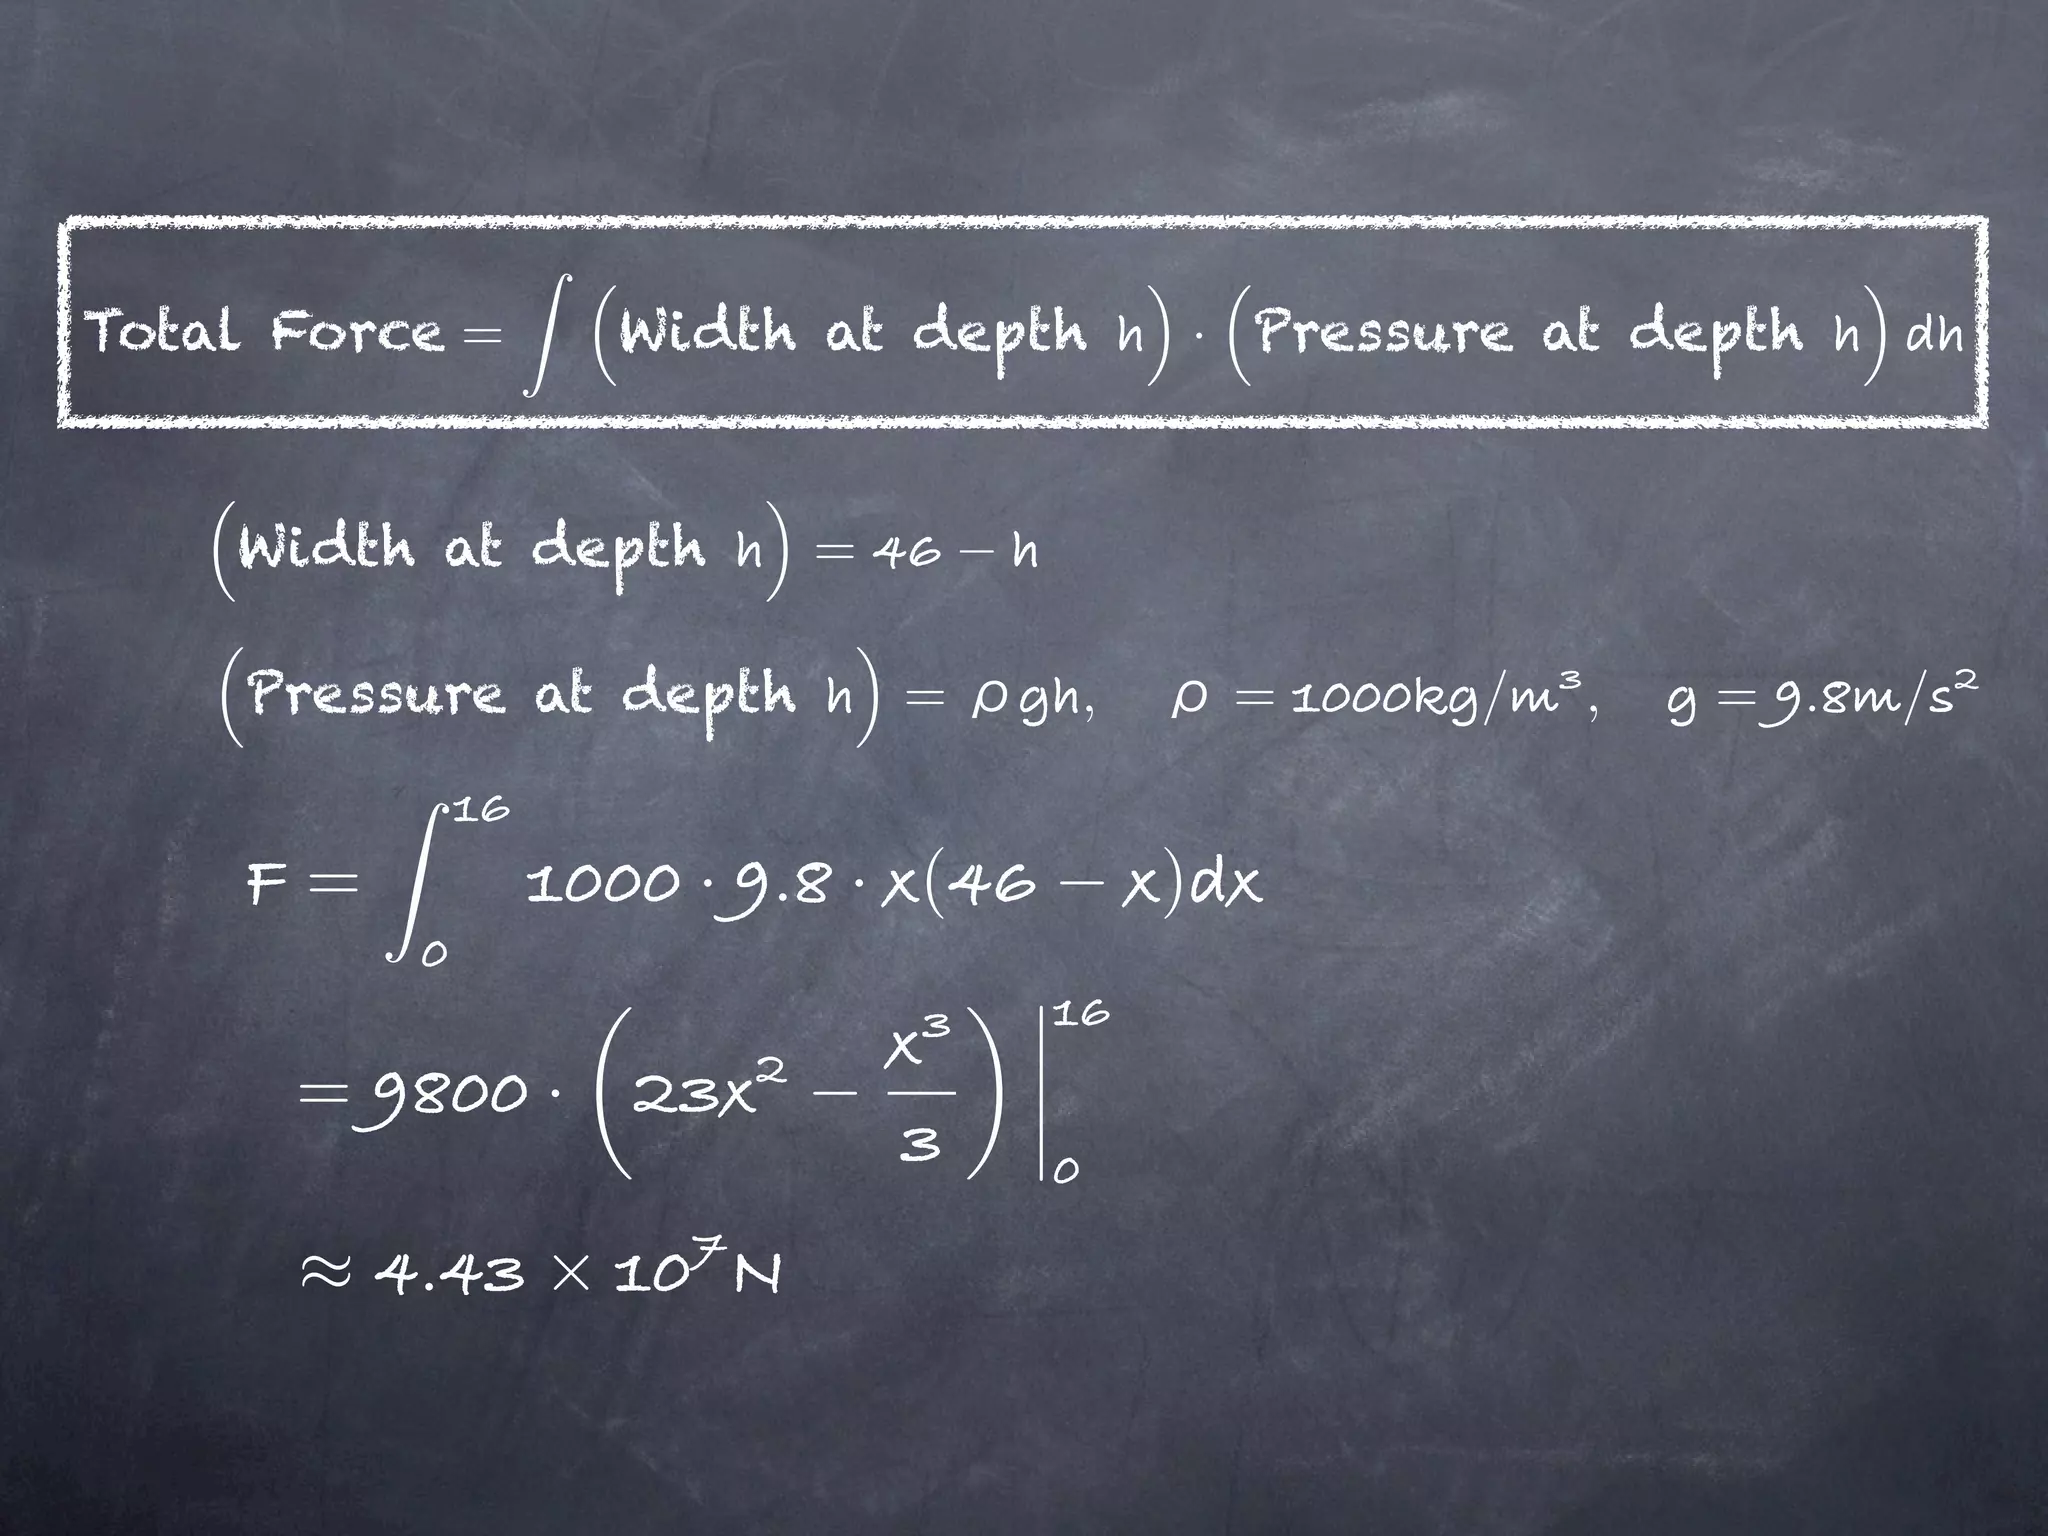 Total Force = ∫ (Width at depth h) · (Pressure at depth h) dh
(Width at depth h) = 46 − h
(Pressure at depth h) = ρgh, ρ = 1000kg/m³, g = 9.8m/s²
F = ∫₀¹⁶ 1000 · 9.8 · x(46 − x)dx
= 9800 · (23x² − x³/3)|₀¹⁶
≈ 4.43 × 10⁷ N